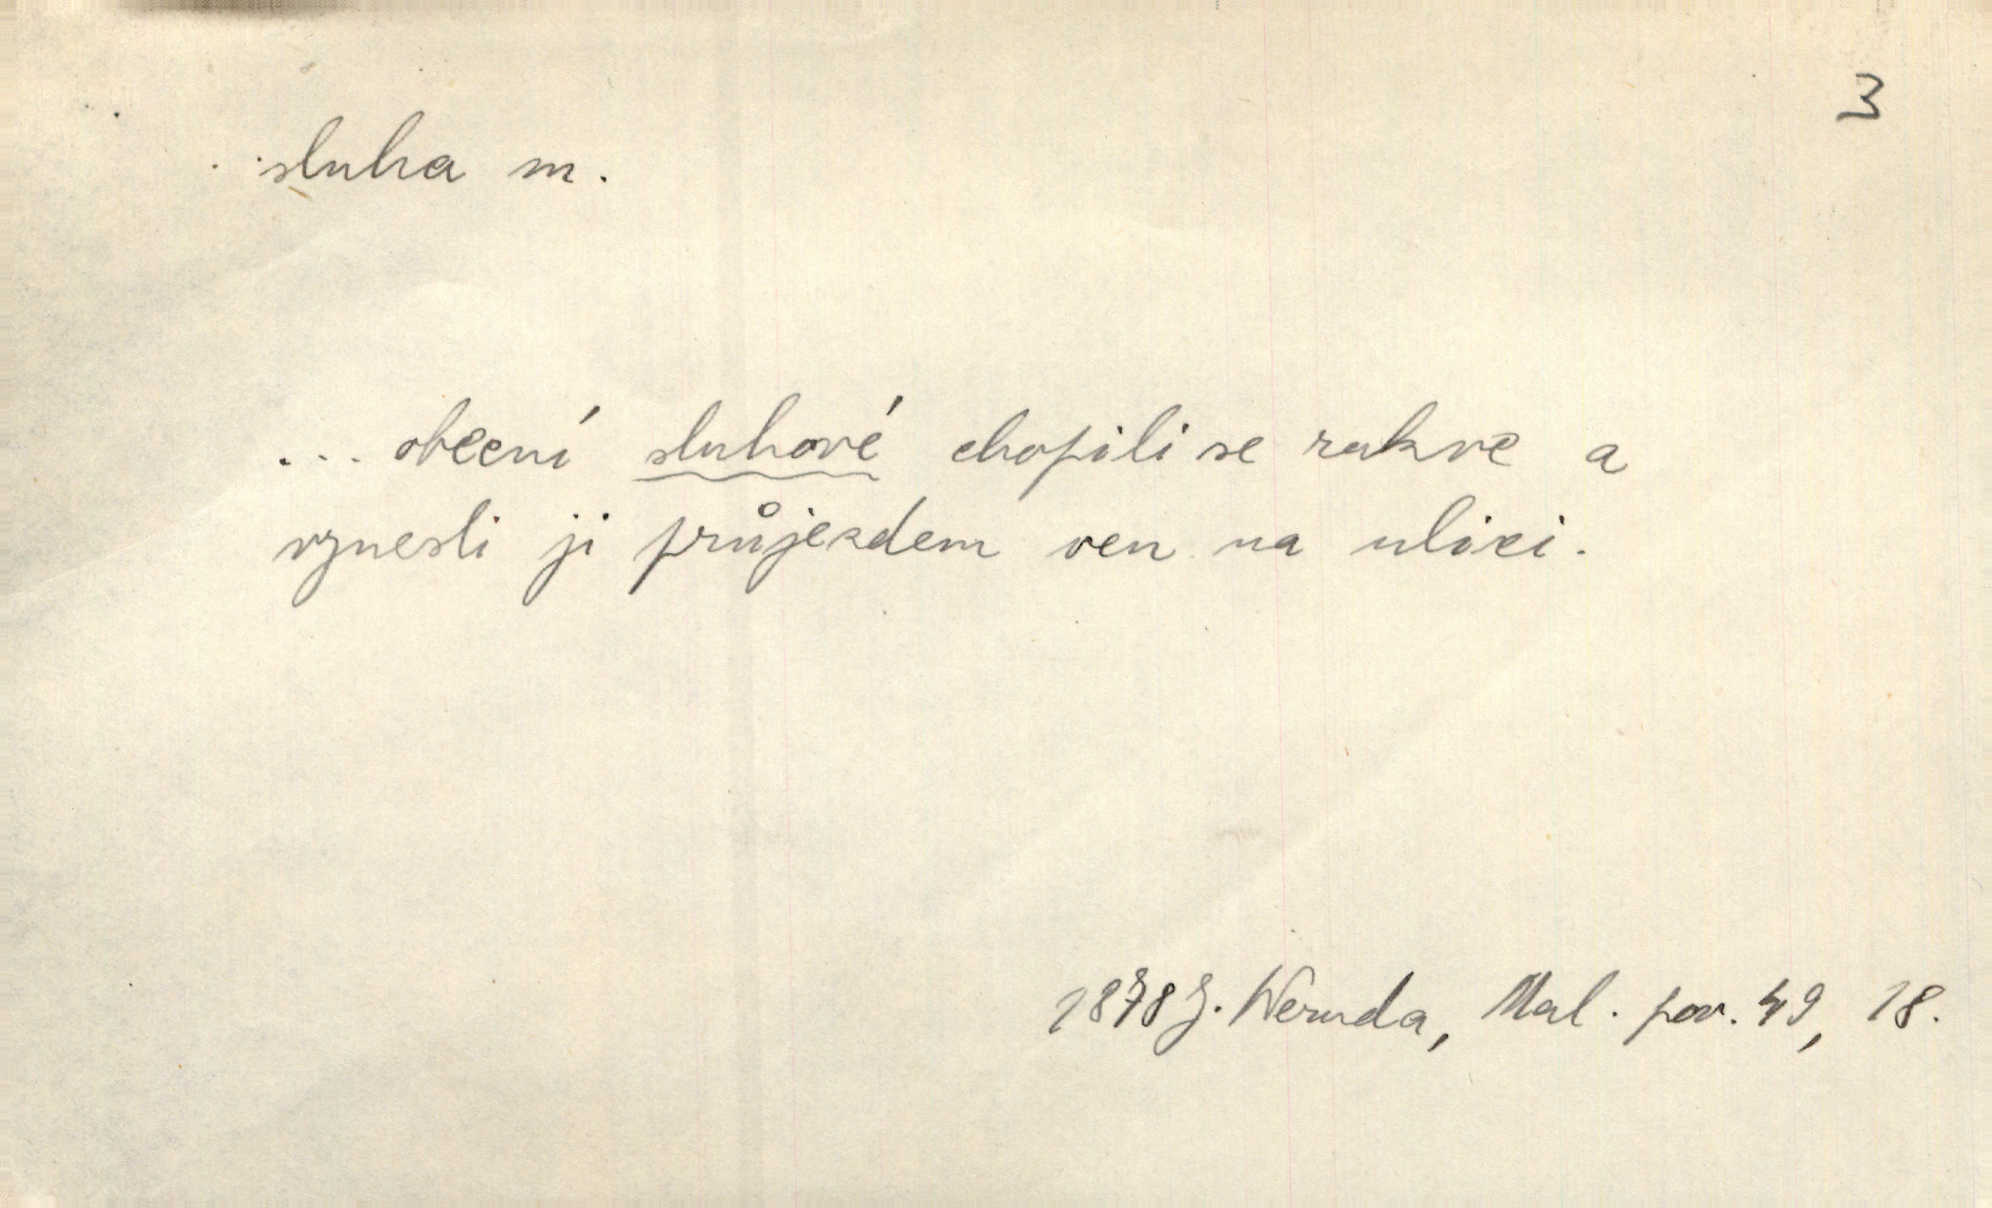 3
sluha m.
... obecní sluhové chopili se rakve a
vznesli ji průjezdem ven na ulici.
1878 J. Neruda, Mal. pov. 49, 18.